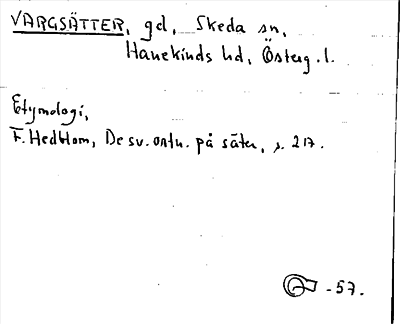 VARGSÄTTER, gd, Skeda sn,
Hanekinds hd, Österg. l.
Etymologi,
F. Hedblom, De sv. ortn. på säter, s. 217.
-57.